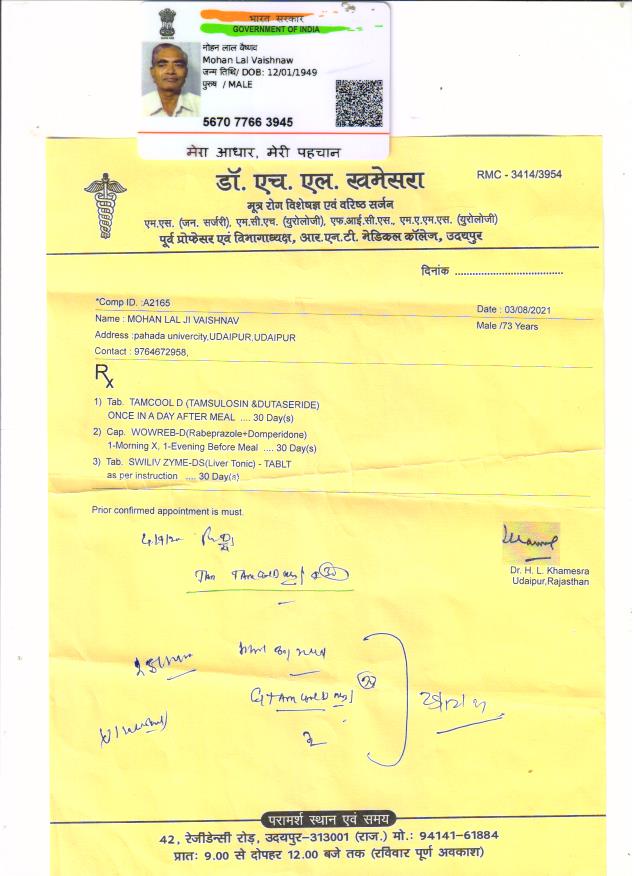 भारत सरकार
GOVERNMENT OF INDIA
मोहन लाल वैष्णव
Mohan Lal Vaishnaw
जन्म तिथि/ DOB: 12/01/1949
पुरुष / MALE
5670 7766 3945
मेरा आधार, मेरी पहचान
डॉ. एच. एल. खमेसरा
RMC - 3414/3954
मूत्र रोग विशेषज्ञ एवं वरिष्ठ सर्जन
एम.एस. (जन. सर्जरी), एम.सी.एच. (युरोलोजी), एफ.आई.सी.एस., एम.ए.एम.एस. (युरोलोजी)
पूर्व प्रोफेसर एवं विभागाध्यक्ष, आर.एन.टी. मेडिकल कॉलेज, उदयपुर
दिनांक ....................................
*Comp ID. :A2165
Date : 03/08/2021
Name : MOHAN LAL JI VAISHNAV
Male /73 Years
Address :pahada univercity,UDAIPUR,UDAIPUR
Contact : 9764672958,
Rx
1) Tab. TAMCOOL D (TAMSULOSIN &DUTASERIDE)
ONCE IN A DAY AFTER MEAL .... 30 Day(s)
2) Cap. WOWREB-D(Rabeprazole+Domperidone)
1-Morning X, 1-Evening Before Meal .... 30 Day(s)
3) Tab. SWILIV ZYME-DS(Liver Tonic) - TABLT
as per instruction .... 30 Day(s)
Prior confirmed appointment is must.
Dr. H. L. Khamesra
Udaipur,Rajasthan
परामर्श स्थान एवं समय
42, रेजीडेन्सी रोड़, उदयपुर-313001 (राज.) मो.: 94141-61884
प्रातः 9.00 से दोपहर 12.00 बजे तक (रविवार पूर्ण अवकाश)